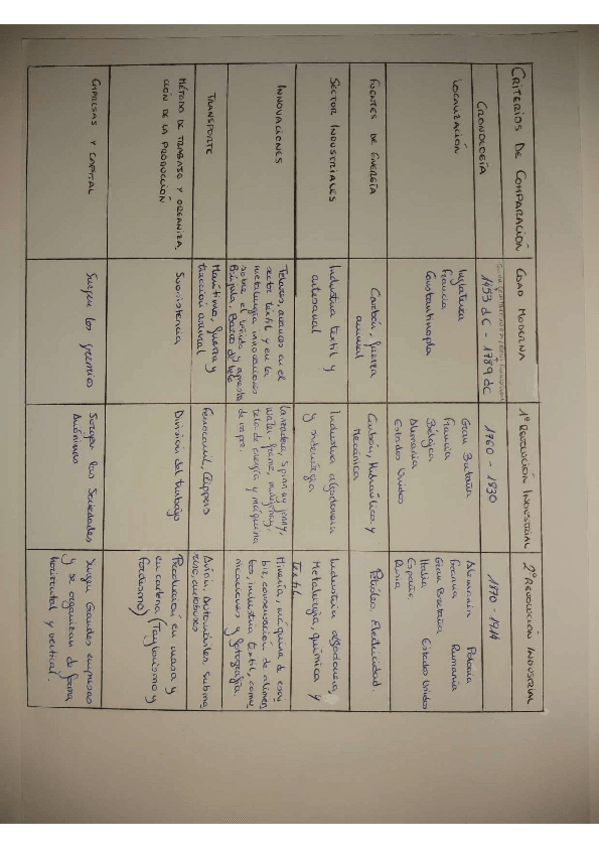 CRITERIOS DE COMPARACIÓN
EDAD MODERNA
1º REVOLUCIÓN INDUSTRIAL
2º REVOLUCIÓN INDUSTRIAL
CRONOLOGÍA
1453 dC - 1789 dC
1760 - 1830
1870 - 1914
LOCALIZACIÓN
Inglaterra
Francia
Constantinopla
Gran Bretaña
Francia
Bélgica
Alemania
Estados Unidos
Alemania Polonia
Francia Rumania
Gran Bretaña
Italia Estados Unidos
España
Rusia
FUENTES DE ENERGÍA
Carbón, fuerza
animal
Carbón, Hidráulica y
Mecánica
Petróleo, Electricidad
SECTOR INDUSTRIALES
Industria textil y
artesanal
Industria algodonera
y siderurgia
Industria algodonera,
Metalurgia, química y
Textil
INNOVACIONES
Telares, avances en el
sector textil y en la
metalurgia innovaciones
sobre el
Brújula, Barco de vela
Lanzadera, spinning jenny,
water-frame,
de energía y máquina
de vapor.
Minería, máquina de escri
bir, conservación de alimen
tos, industria textil, comu
nicaciones y fotografía.
TRANSPORTE
Marítimo, fuerza y
tracción animal
Ferrocarril, Clippers
Avión, Automóviles, subma
rino, autobuses
MÉTODO DE TRABAJO Y ORGANIZA
CIÓN DE LA PRODUCCIÓN
Subsistencia
División del trabajo
Producción en masa y
en cadena (Taylorismo y
fordismo)
EMPRESAS Y CAPITAL
Surgen los gremios
Surgen las Sociedades
Anónimas
Surgen Grandes empresas
y se organizan de forma
horizontal y vertical.